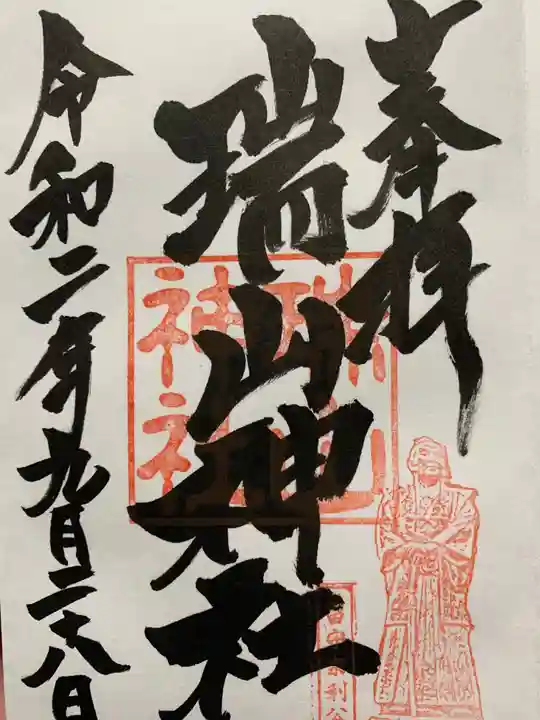 奉拝
瑞山神社
令和二年九月二十八日